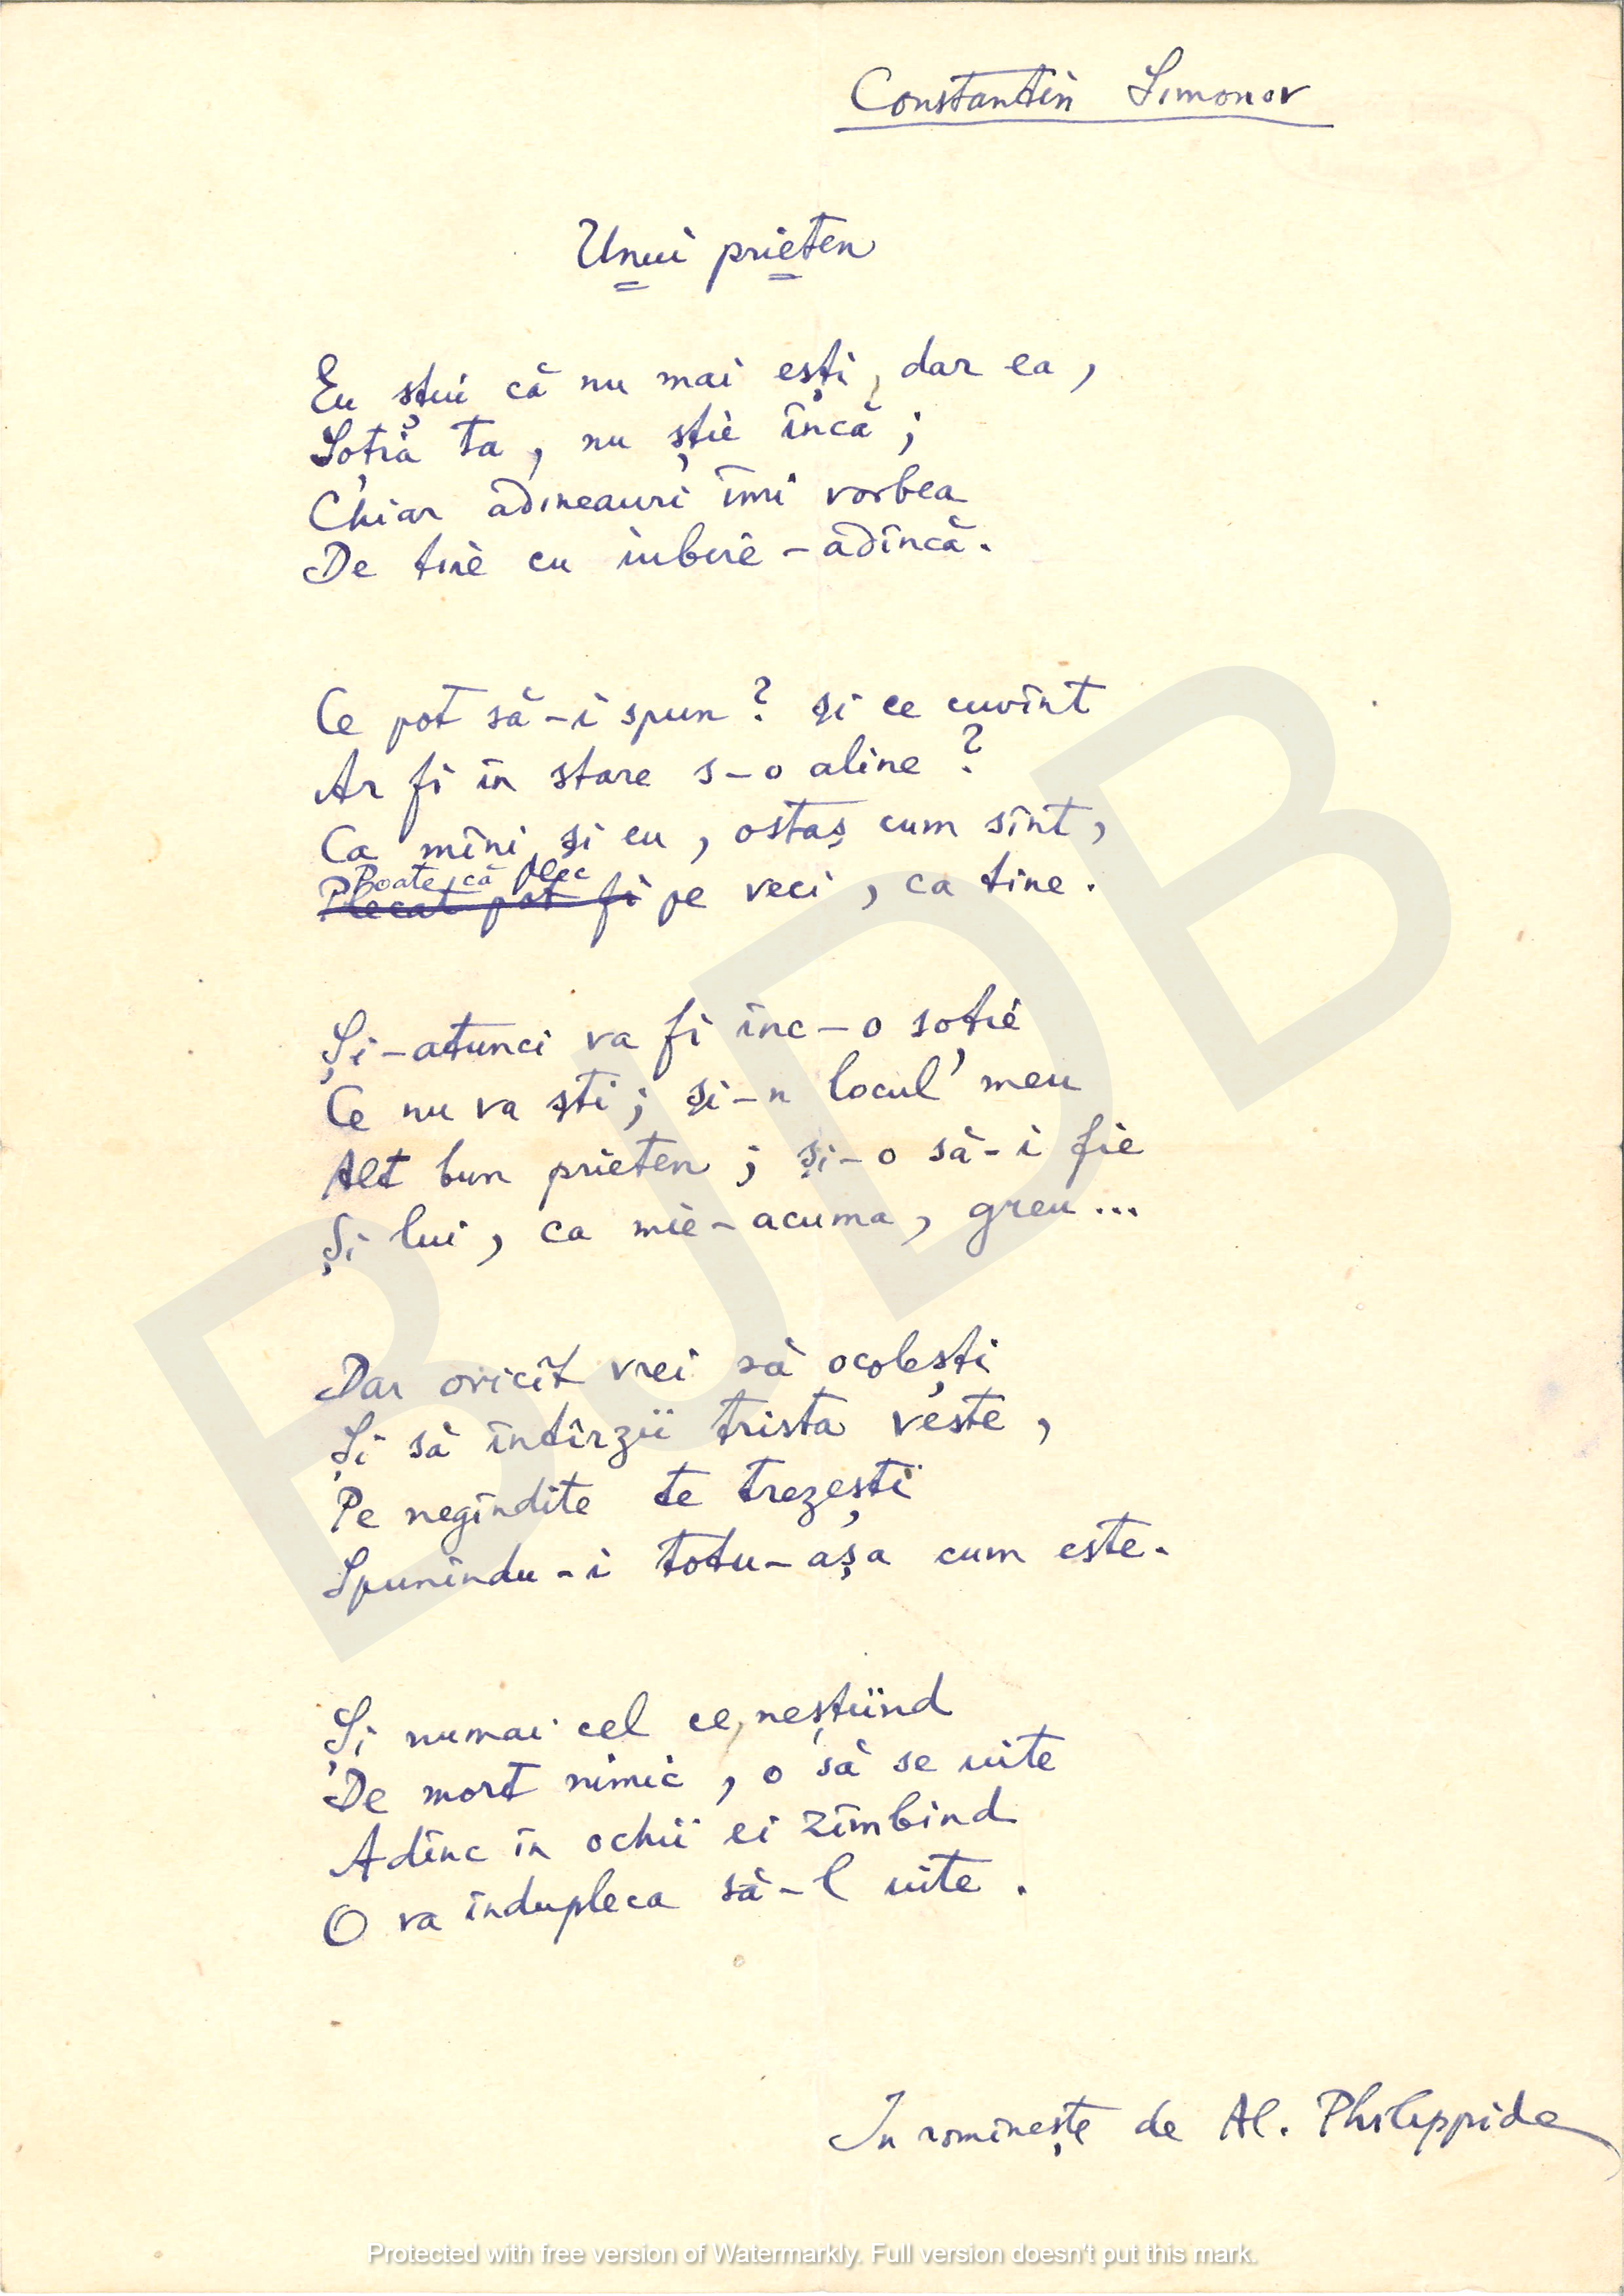 Constantin Simonov
Unui prieten
Eu știu că nu mai ești, dar ea,
Soția ta, nu știe încă;
Chiar adineauri îmi vorbea
De tine cu iubire-adîncă.
Ce pot să-i spun? Și ce cuvînt
Ar fi în stare s-o aline?
Ca mîni și eu, ostaș cum sînt,
Poate că plec
Plecat pot fi pe veci, ca tine.
Și-atunci va fi înc-o soție
Ce nu va ști; și-n locul meu
Alt bun prieten; și-o să-i fie
Și lui, ca mie-acuma, greu...
Dar oricît vrei să ocolești
Și să întîrzii trista veste,
Pe negîndite te trezești
Spunîndu-i totu-așa cum este.
Și numai cel ce, neștiind
De mort nimic, o să se uite
Adînc în ochii ei zîmbind
O va îndupleca să-l uite.
In romînește de Al. Philippide
BJDB
Protected with free version of Watermarkly. Full version doesn't put this mark.